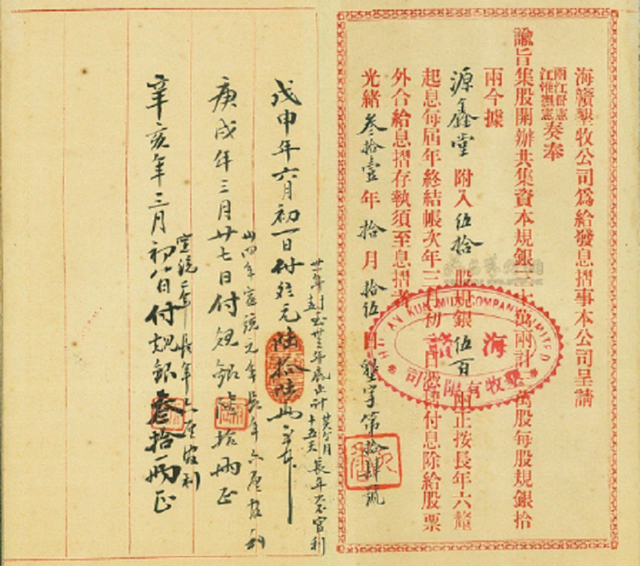 海贛墾牧公司爲給發息摺事本公司呈請
兩江督憲
江淮撫憲
奏奉
諭旨集股開辦共集資本規銀十萬兩計萬股每股規銀拾
兩今據
源鑫堂附入伍拾股規銀伍百兩正按長年六釐
起息每屆年終結帳次年三月初一日憑摺付息除給股票
外合給息摺存執須至息摺者
光緒叁拾壹年拾月拾伍日 字第拾肆號
COMPANY LIMITED
海贛
墾牧有限公司
戊申年六月初一日付 元陸拾陸兩
庚戌年三月廿七日付規銀陸拾兩正
宣統元年長年六厘官利
辛亥年三月初八日付規銀叁拾兩正
宣統二年長年六厘官利